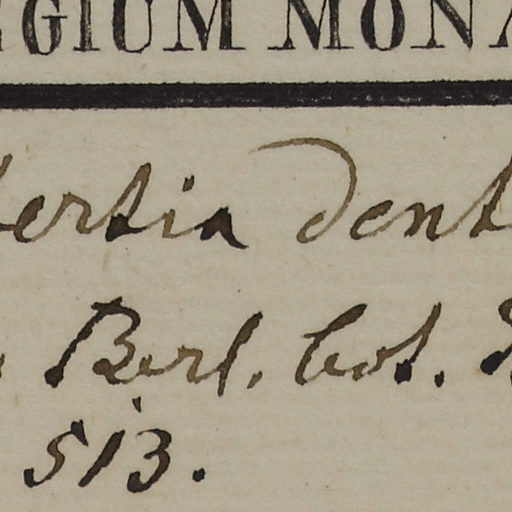 EGIUM MONA
ertia dent
Berl. bot.
513.